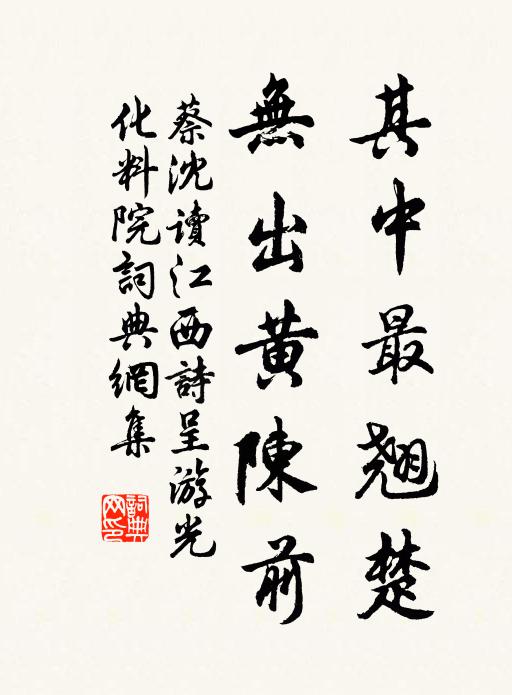 其中最翹楚
無出黃陳前
蔡沈讀江西詩呈游光
化料院詞典網集
詞典網印